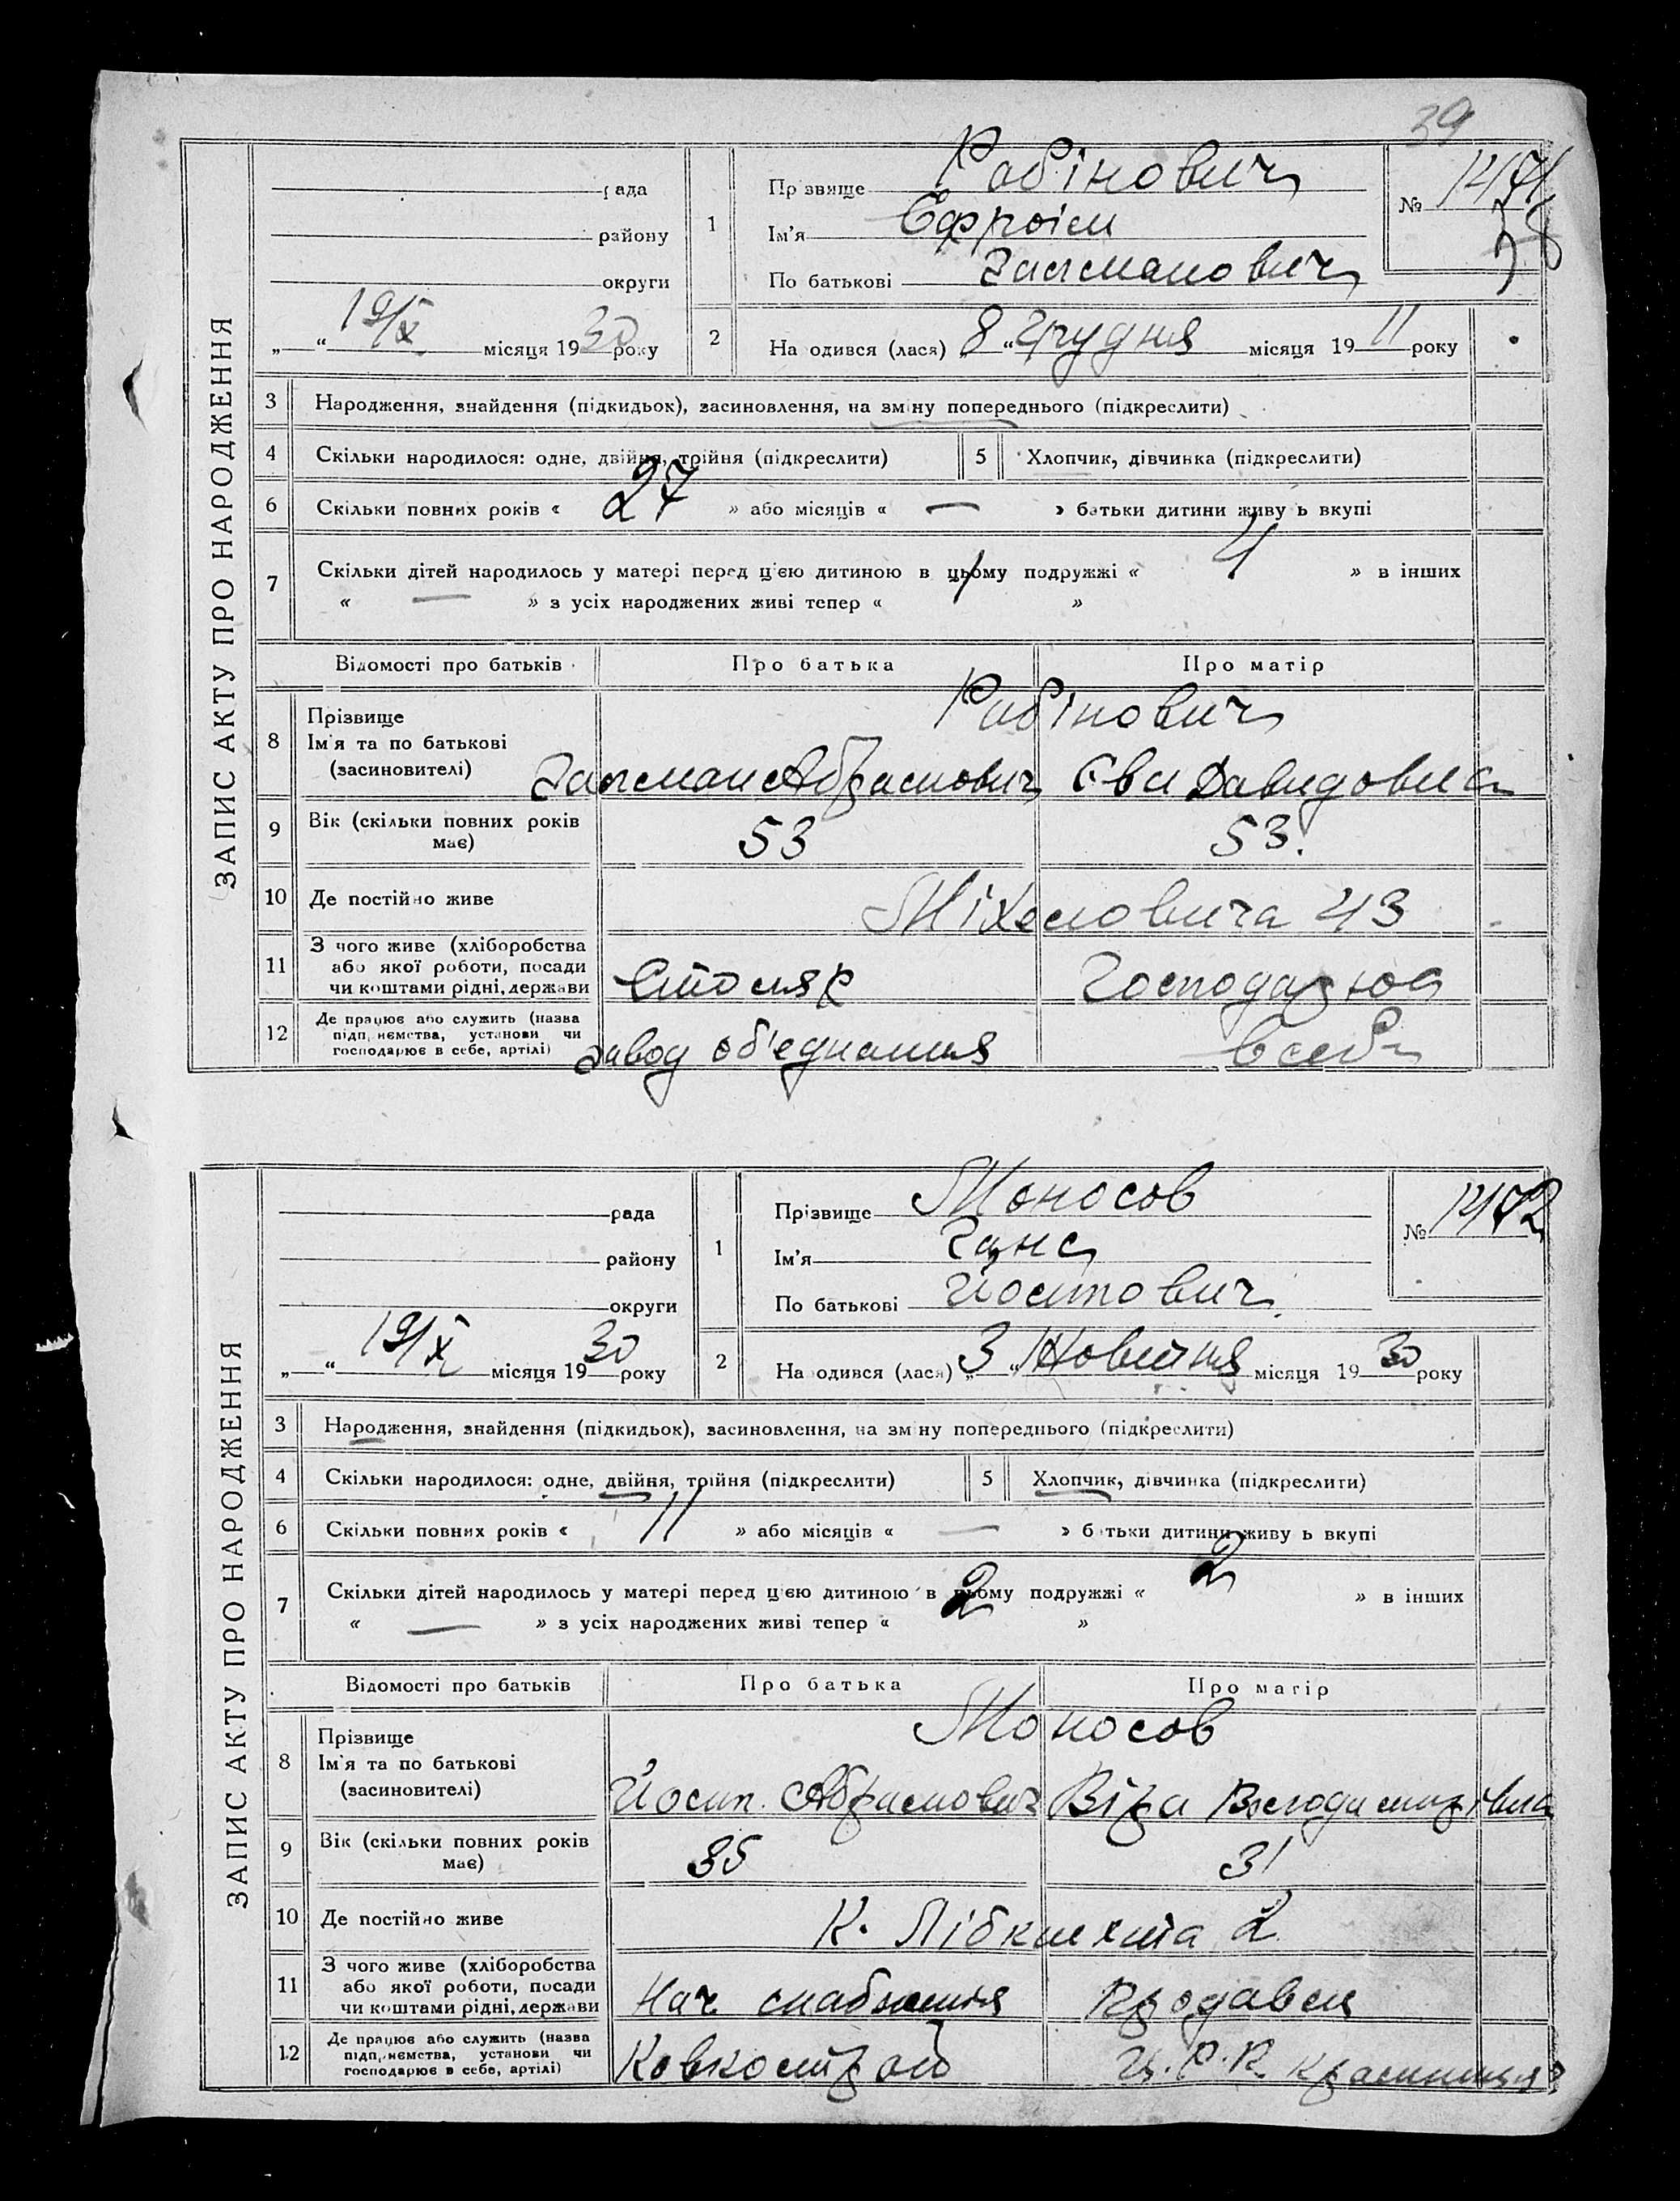 39
ЗАПИС АКТУ ПРО НАРОДЖЕННЯ
рада
району
округи
„ “ 19/X місяця 1930 року
1
Прізвище Рабінович
Ім'я Ефроім
По батькові Залманович
№ 1471
38
2
Народився (лася) „8 “ Грудня місяця 1911 року
3 Народження, знайдення (підкидьок), засиновлення, на зміну попереднього (підкреслити)
4 Скільки народилося: одне, двійня, трійня (підкреслити)
5 Хлопчик, дівчинка (підкреслити)
6 Скільки повних років « 27 » або місяців « — » батьки дитини живуть вкупі
7 Скільки дітей народилось у матері перед цією дитиною в цьому подружжі « 4 » в інших
« — » з усіх народжених живі тепер « »
Відомості про батьків Про батька Про матір
8 Прізвище Рабінович
Ім'я та по батькові
(засновителі) Залман Абрамович Єва Давидовна
9 Вік (скільки повних років має) 53 53.
10 Де постійно живе Міхеловича 43
11 З чого живе (хліборобства
або якої роботи, посади
чи коштами рідні, держави Столяр Господарюа
12 Де працює або служить (назва
підприємства, установи чи
господарює в себе, артілі) завод об'єднання в себе
ЗАПИС АКТУ ПРО НАРОДЖЕННЯ
рада
району
округи
„ “ 19/X місяця 1930 року
1
Прізвище Моносов
Ім'я Ганс
По батькові Йосипович
№ 1472
2
Народився (лася) „3 “ Жовтня місяця 1930 року
3 Народження, знайдення (підкидьок), засиновлення, на зміну попереднього (підкреслити)
4 Скільки народилося: одне, двійня, трійня (підкреслити)
5 Хлопчик, дівчинка (підкреслити)
6 Скільки повних років « 11 » або місяців « — » батьки дитини живуть вкупі
7 Скільки дітей народилось у матері перед цією дитиною в цьому подружжі « 2 » в інших
« — » з усіх народжених живі тепер « 2 »
Відомості про батьків Про батька Про матір
8 Прізвище Моносов
Ім'я та по батькові
(засиновителі) Йосип Абрамович Віра Володимирівна
9 Вік (скільки повних років має) 35 31
10 Де постійно живе К. Лібкнехта 2
11 З чого живе (хліборобства
або якої роботи, посади
чи коштами рідні, держави Нач снабження Продавец
12 Де працює або служить (назва
підприємства, установи чи
господарює в себе, артілі) Ц.Р.К.